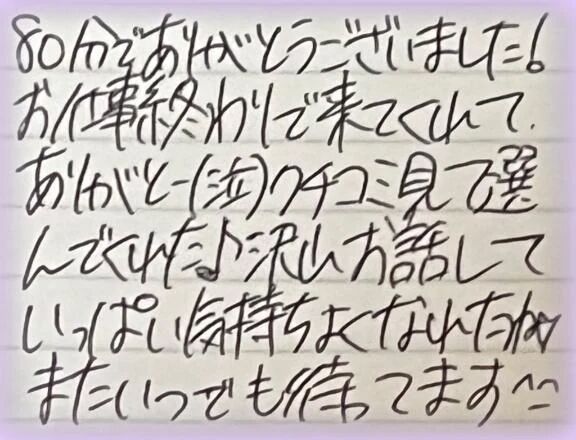 80分でありがとうございました!
お仕事終わりで来てくれて
ありがとー(泣)クチコミ見て選
んでくれた♪沢山お話して
いっぱい気持ちよくなれたね♡
またいつでも待ってます^^